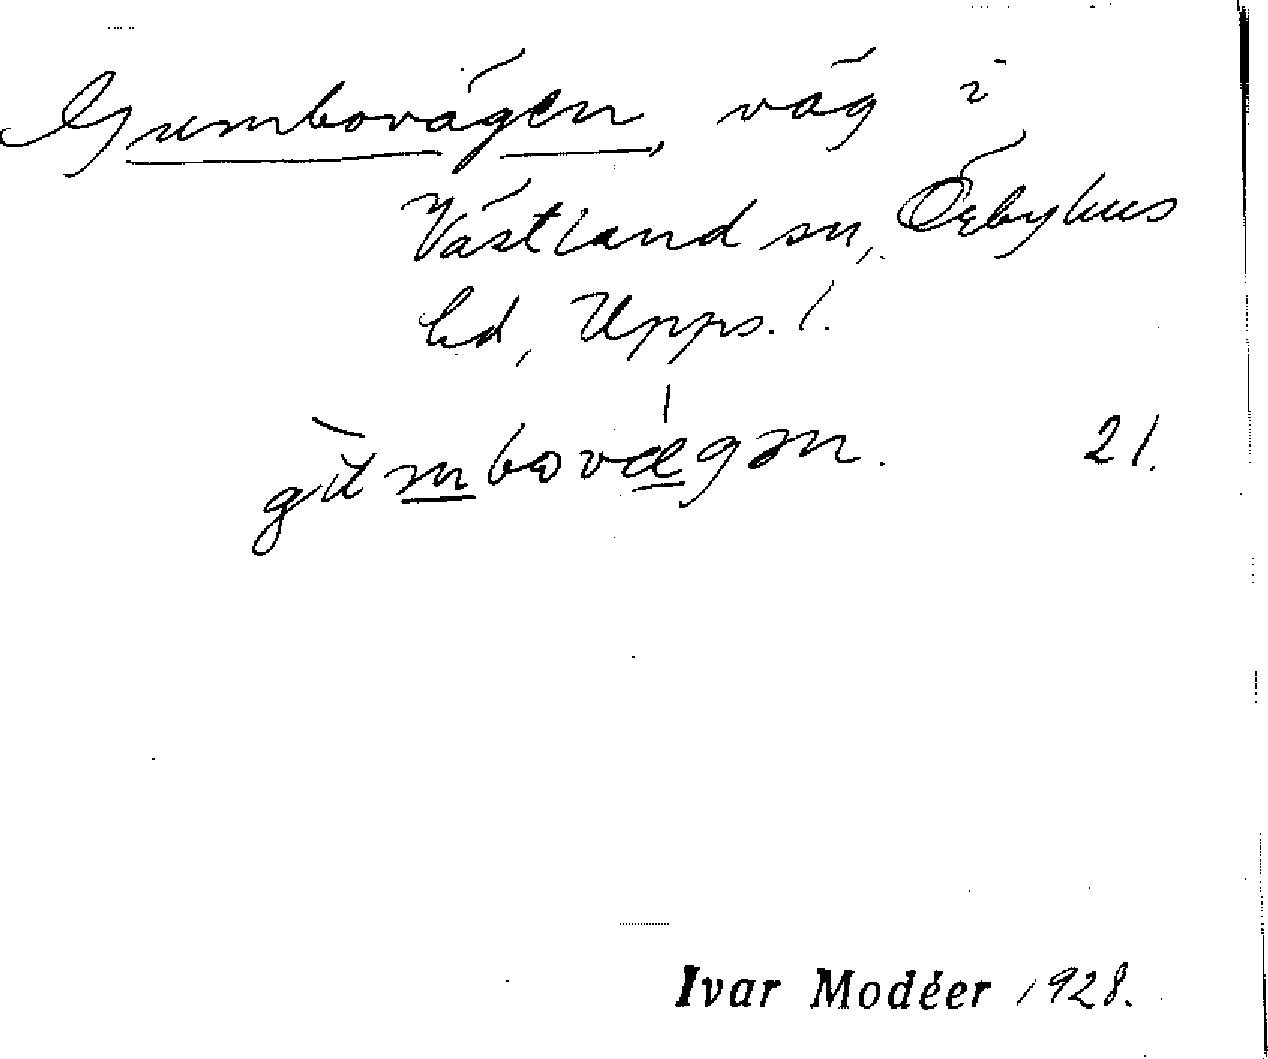 Gumbovägen, väg i
Västland sn, Örbyhus
hd, Upps. l.
gùmbovægən. 21.
Ivar Modéer 1928.